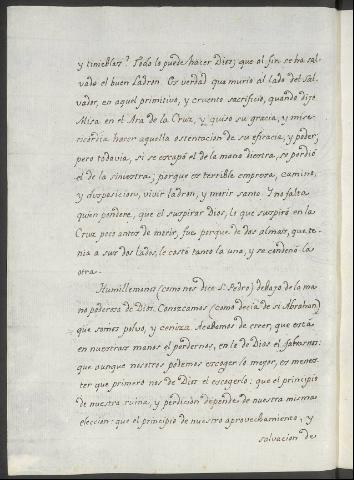 y tinieblas? Todo lo puede hacer Dios; que al fin se ha sal-
vado el buen Ladron. Es verdad que murio al lado del Sal-
vador, en aquel primitivo, y cruento sacrificio, quando dijo
Misa en el Ara de la Cruz, y quiso su gracia, y mise-
ricordia hacer aquella ostentacion de su eficacia, y poder;
pero todavia, si se escapó el de la mano diextra, se perdió
el de la siniestra; porque es terrible empresa, camino,
y disposicion, vivir ladron, y morir santo. I no falta
quien pondere, que el suspirar Dios, lo que suspiró en la
Cruz poco antes de morir, fue porque de dos almas, que te-
nia a sus dos lados, le costó tanto la una, y se condenó la
otra.
Humillemonos (como nos dice S. Pedro) debajo de la ma-
no poderosa de Dios. Conozcamos (como decia de si Abrahan)
que somos polvo, y ceniza. Acabemos de creer, que está
en nuestras manos el perdernos, en la de Dios el
que aunque nosotros podemos escoger lo mejor, es menes-
ter que primero nos de Dios el escogerlo: que el principio
de nuestra ruina, y perdicion depende de nuestra misma
eleccion: que el principio de nuestro aprovechamiento, y
salvacion de